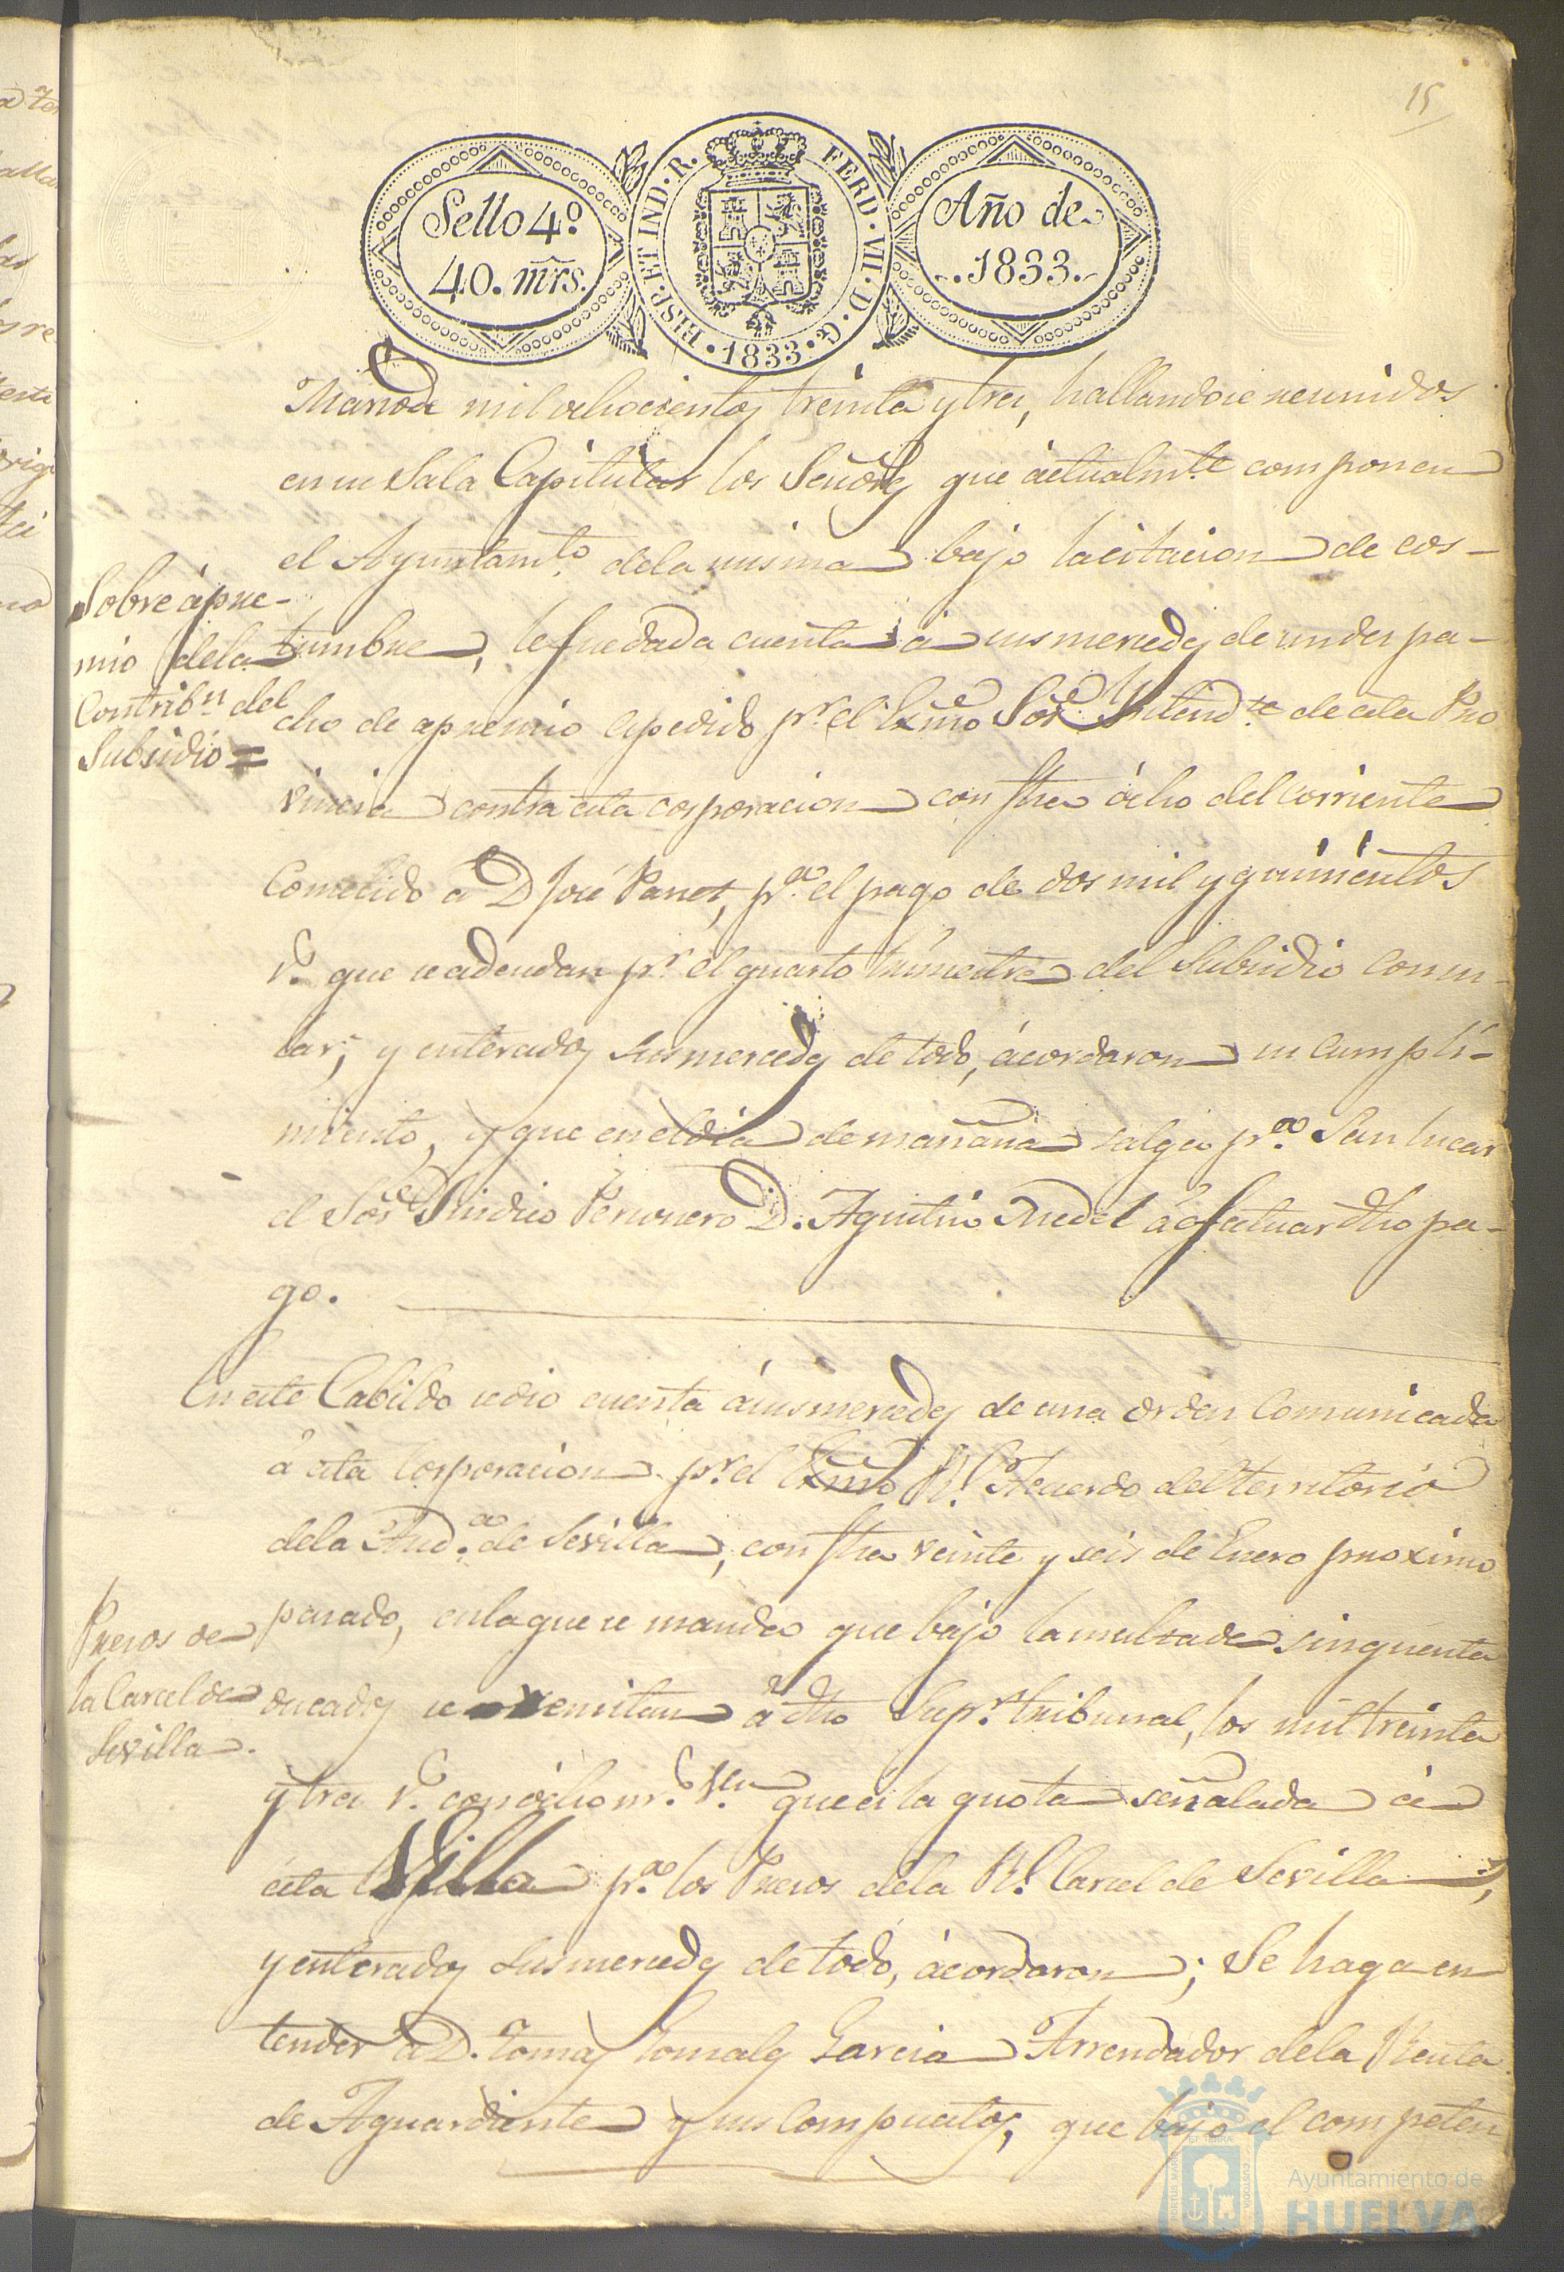 15
Sello 4º
40. mrs.
HISP. ET IND. R. FERD. VII. D. G. 1833.
Año de
1833.
Marzo de mil ochocientos treinta y tres, hallandose reunidos
en su Sala Capitular los Señores que áctualmte componen
el Ayuntamto. dela misma bajo lacitacion de cos-
Sobre ápre-
mio dela
Contribn. del
Subsidio =
tumbre, le fue dada cuenta á sus mercedes de un des pa-
cho de apremio espedido pr. el Exmo Sor. Yntendte. de esta Pro
vincia contra esta corporacion con fha ócho del corriente
Cometido á D José Paret, pa. el pago de dos mil y quinientos
rs. que se adeudan pr. el quarto trimestre del Subsidio comer-
cial; y enterados sus mercedes de todo, ácordaron su cumpli-
miento, y que en el dia de mañana salga pa. San lucar
el Sor. Sindico Personero D. Agustin á efectuar dho pa-
go.
En este Cabildo se dio cuenta á sus mercedes de una orden Comunicada
á esta Corporacion pr. el Exmo Rl. Acuerdo del territorio
dela Auda. de Sevilla, con fha veinte y seis de Enero proximo
Presos de
la Carcel de
Sevilla.
pasado, en la que se manda que bajo la multa de sinquenta
ducados se remitan á dho Supr. tribunal, los mil treinta
y tres rs. con ócho mrs. vn. que es la quota señalada á
ésta Villa pa. los Presos dela Rl. Carcel de Sevilla;
y enterados sus mercedes de todo, ácordaron; Se haga en
tender á D. Tomas Gonsales Garcia Arrendador dela Renta
de Aguardiente y sus Compuestos, que bajo el competen
Ayuntamiento de
HUELVA